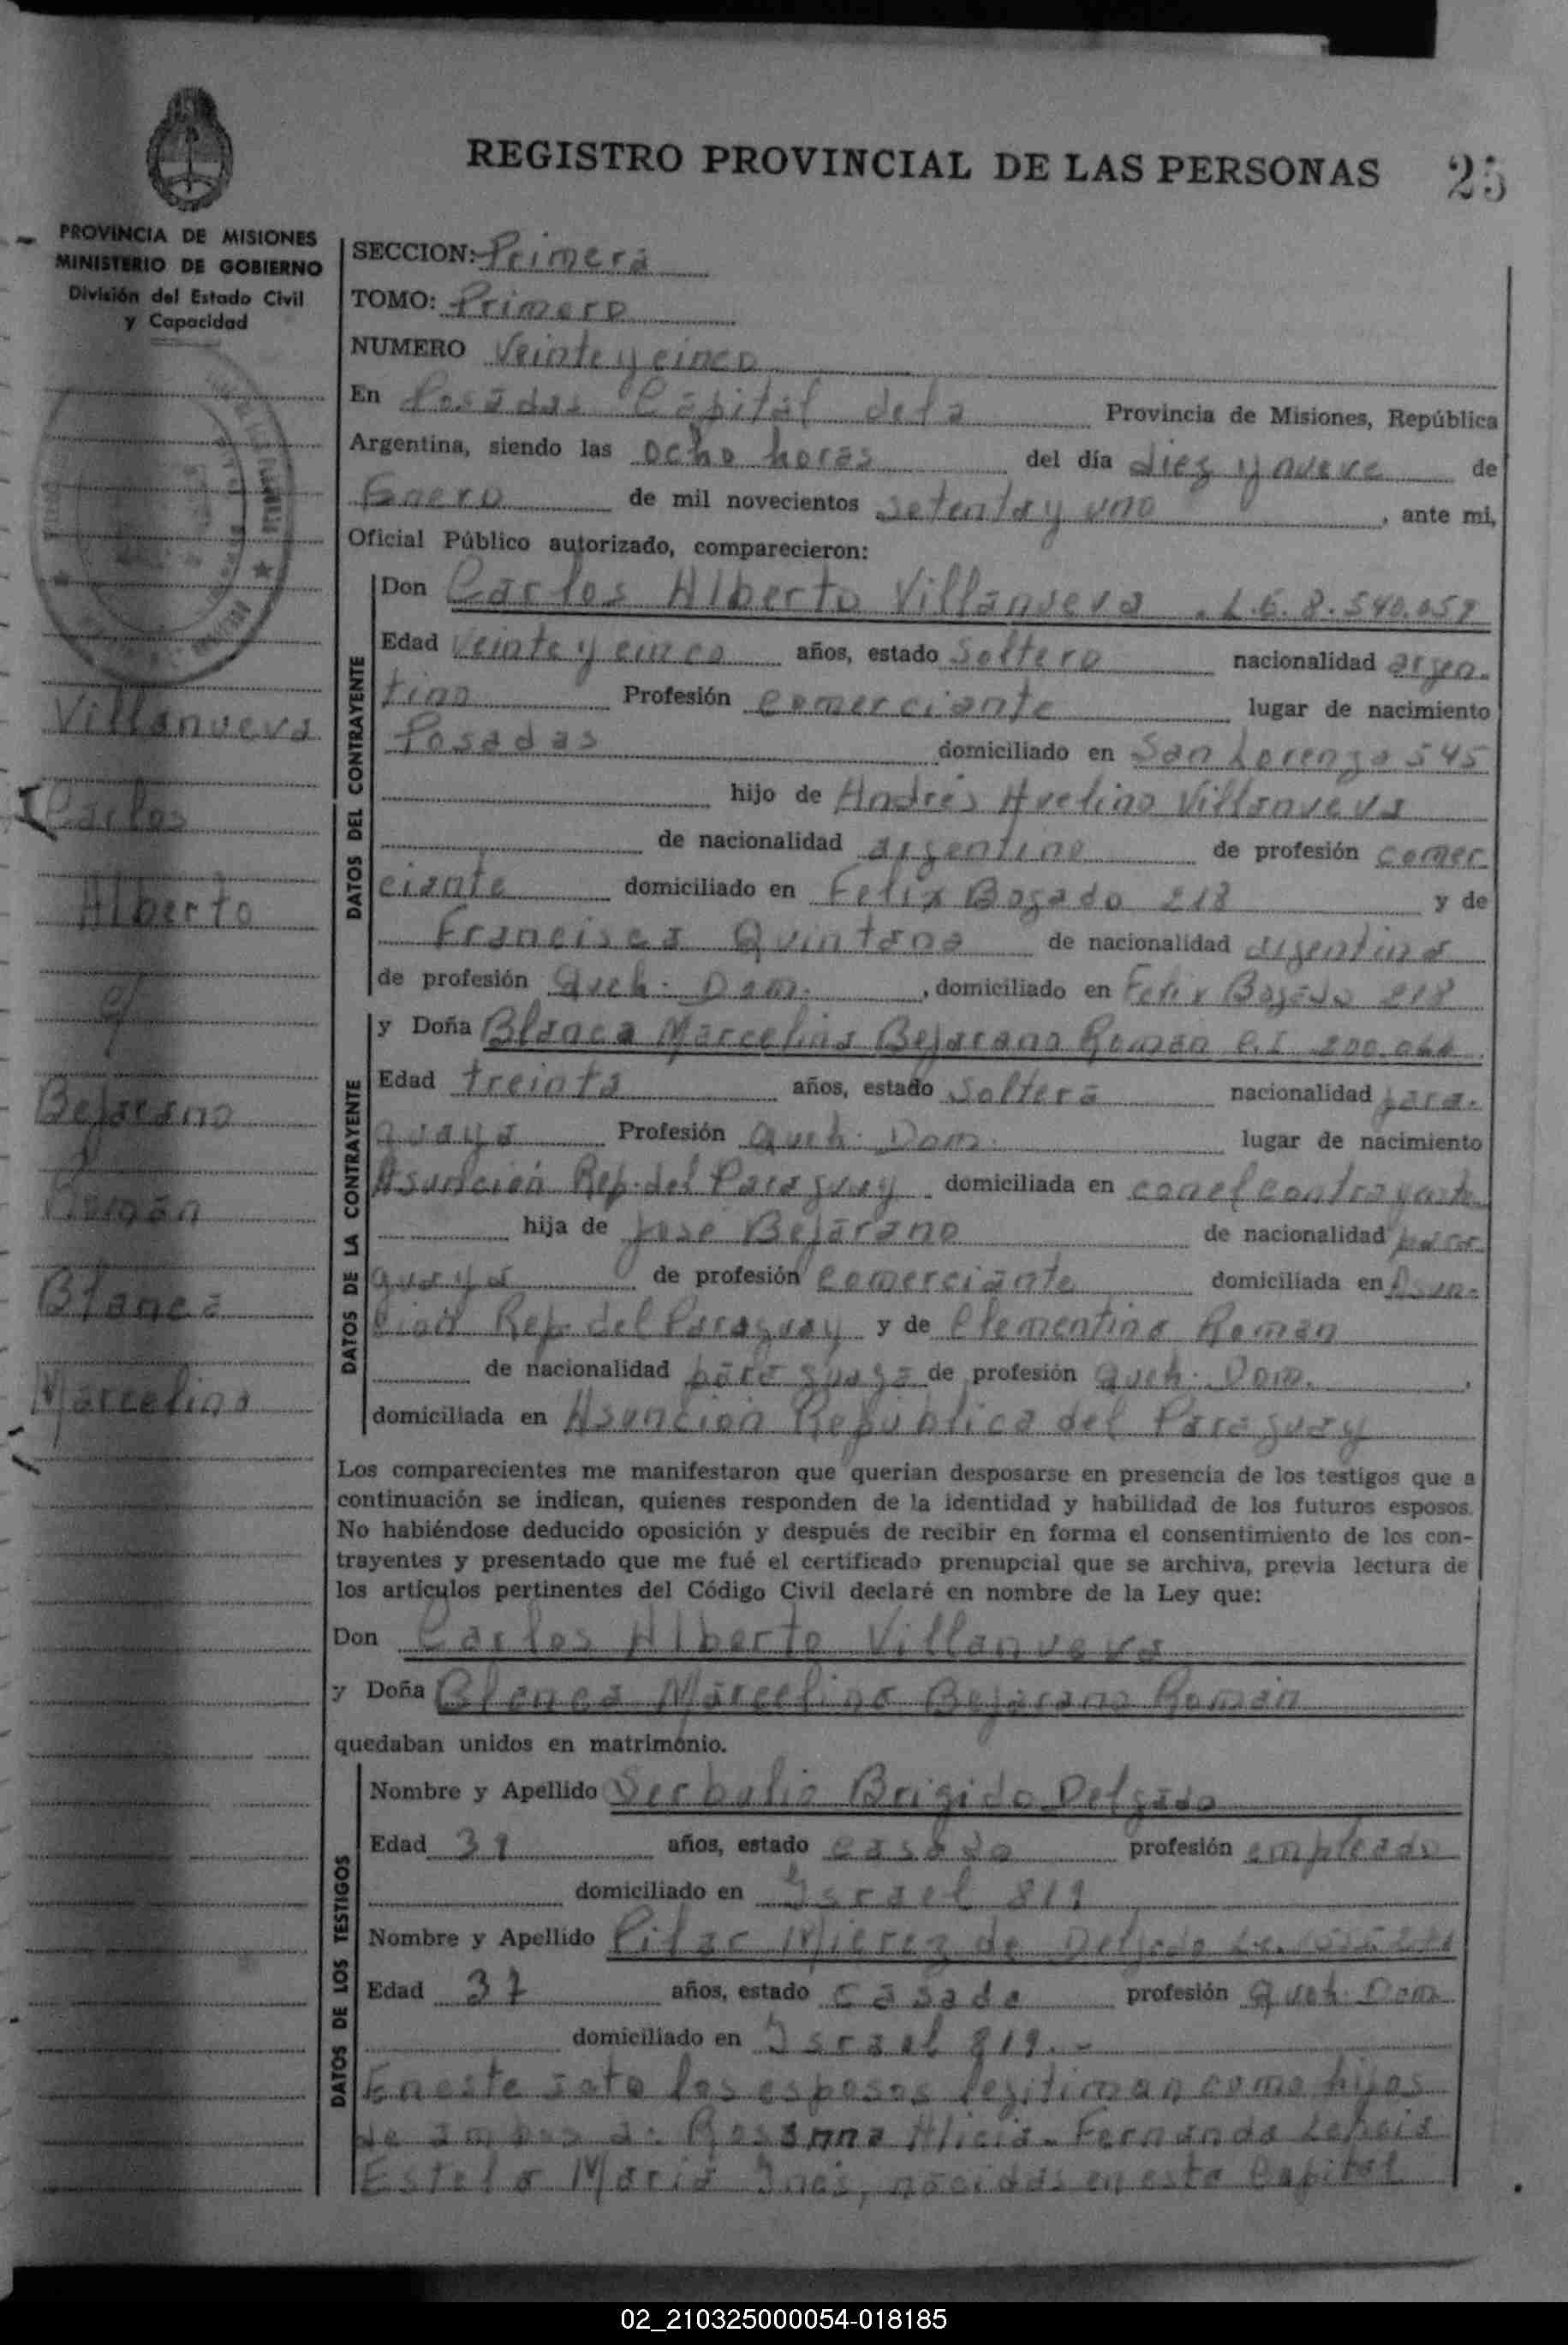 REGISTRO PROVINCIAL DE LAS PERSONAS 25
PROVINCIA DE MISIONES
MINISTERIO DE GOBIERNO
División del Estado Civil
y Capacidad
Villanueva
Carlos
Alberto
y
Bejarano
Román
Blanca
Marcelina
SECCION: Primera
TOMO: Primero
NUMERO Veinte y cinco
En Posadas Capital de la Provincia de Misiones, República
Argentina, siendo las ocho horas del día diez y nueve de
Enero de mil novecientos setenta y uno, ante mi,
Oficial Público autorizado, comparecieron:
DATOS DEL CONTRAYENTE
Don Carlos Alberto Villanueva . L.E. 8.540.059
Edad veinte y cinco años, estado soltero nacionalidad argen-
tino Profesión comerciante lugar de nacimiento
Posadas domiciliado en San Lorenzo 545
hijo de Andrés Avelino Villanueva
de nacionalidad argentino de profesión comer
ciante domiciliado en Felix Bogado 218 y de
Francisca Quintana de nacionalidad argentina
de profesión Queh. Dom., domiciliado en Felix Bogado 218
DATOS DE LA CONTRAYENTE
y Doña Blanca Marcelina Bejarano Roman C.I. 200.066
Edad treinta años, estado Soltera nacionalidad para-
guaya Profesión Queh. Dom. lugar de nacimiento
Asunción Rep. del Paraguay domiciliada en con el contrayente
hija de José Bejarano de nacionalidad para
guaya de profesión comerciante domiciliada en Asun-
cion Rep. del Paraguay y de Clementina Roman
de nacionalidad paraguaya de profesión Queh. Dom.,
domiciliada en Asunción República del Paraguay
Los comparecientes me manifestaron que querían desposarse en presencia de los testigos que a
continuación se indican, quienes responden de la identidad y habilidad de los futuros esposos.
No habiéndose deducido oposición y después de recibir en forma el consentimiento de los con-
trayentes y presentado que me fué el certificado prenupcial que se archiva, previa lectura de
los artículos pertinentes del Código Civil declaré en nombre de la Ley que:
Don Carlos Alberto Villanueva
y Doña Blanca Marcelina Bejarano Román
quedaban unidos en matrimonio.
DATOS DE LOS TESTIGOS
Nombre y Apellido Serbulio Brigido Delgado
Edad 39 años, estado casado profesión empleado
domiciliado en Israel 819
Nombre y Apellido Pilar Mierez de Delgado
Edad 37 años, estado casada profesión Queh. Dom
domiciliado en Israel 819.-
En este acto los esposos legitiman como hijos
de ambos a: Rosanna Alicia- Fernanda
Estela María Inés, nacidas en esta Capital
02_210325000054-018185